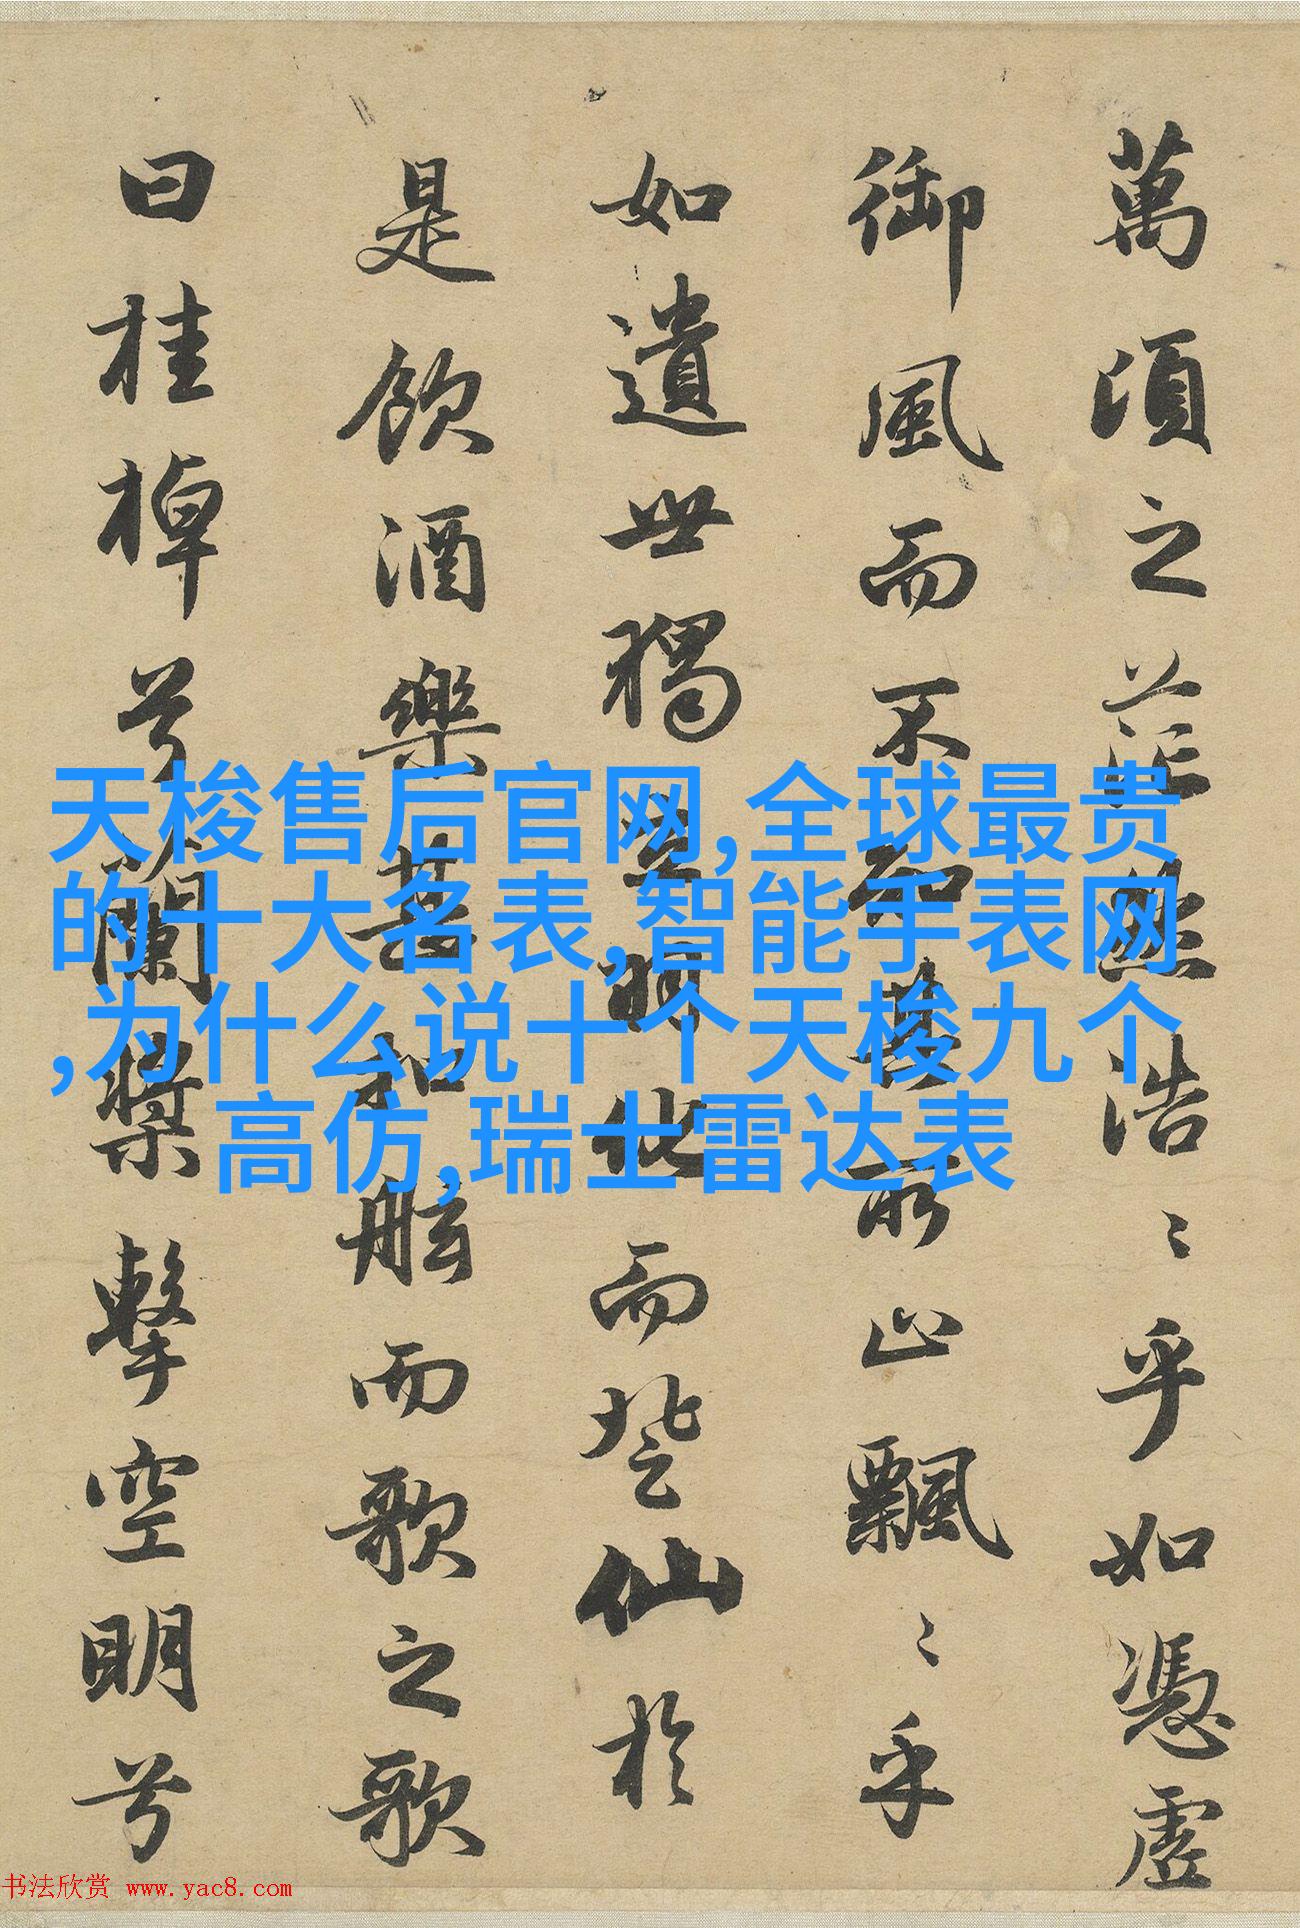 萬頃之茫然浩〻乎如憑虛
御風而不知其所止飄〻乎
如遺世獨立羽化而登仙於
是飲酒樂甚扣舷而歌之歌
曰桂棹兮蘭槳擊空明兮
天梭售后官网,全球最贵
的十大名表,智能手表网
,为什么说十个天梭九个
高仿,瑞士雷达表
书法欣赏 www.yac8.com